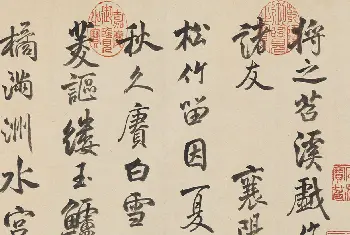 將之苕溪戲作
諸友 襄陽
松竹留因夏
秋久賡白雪
菱謳縷玉鱸
橘滿洲水宮